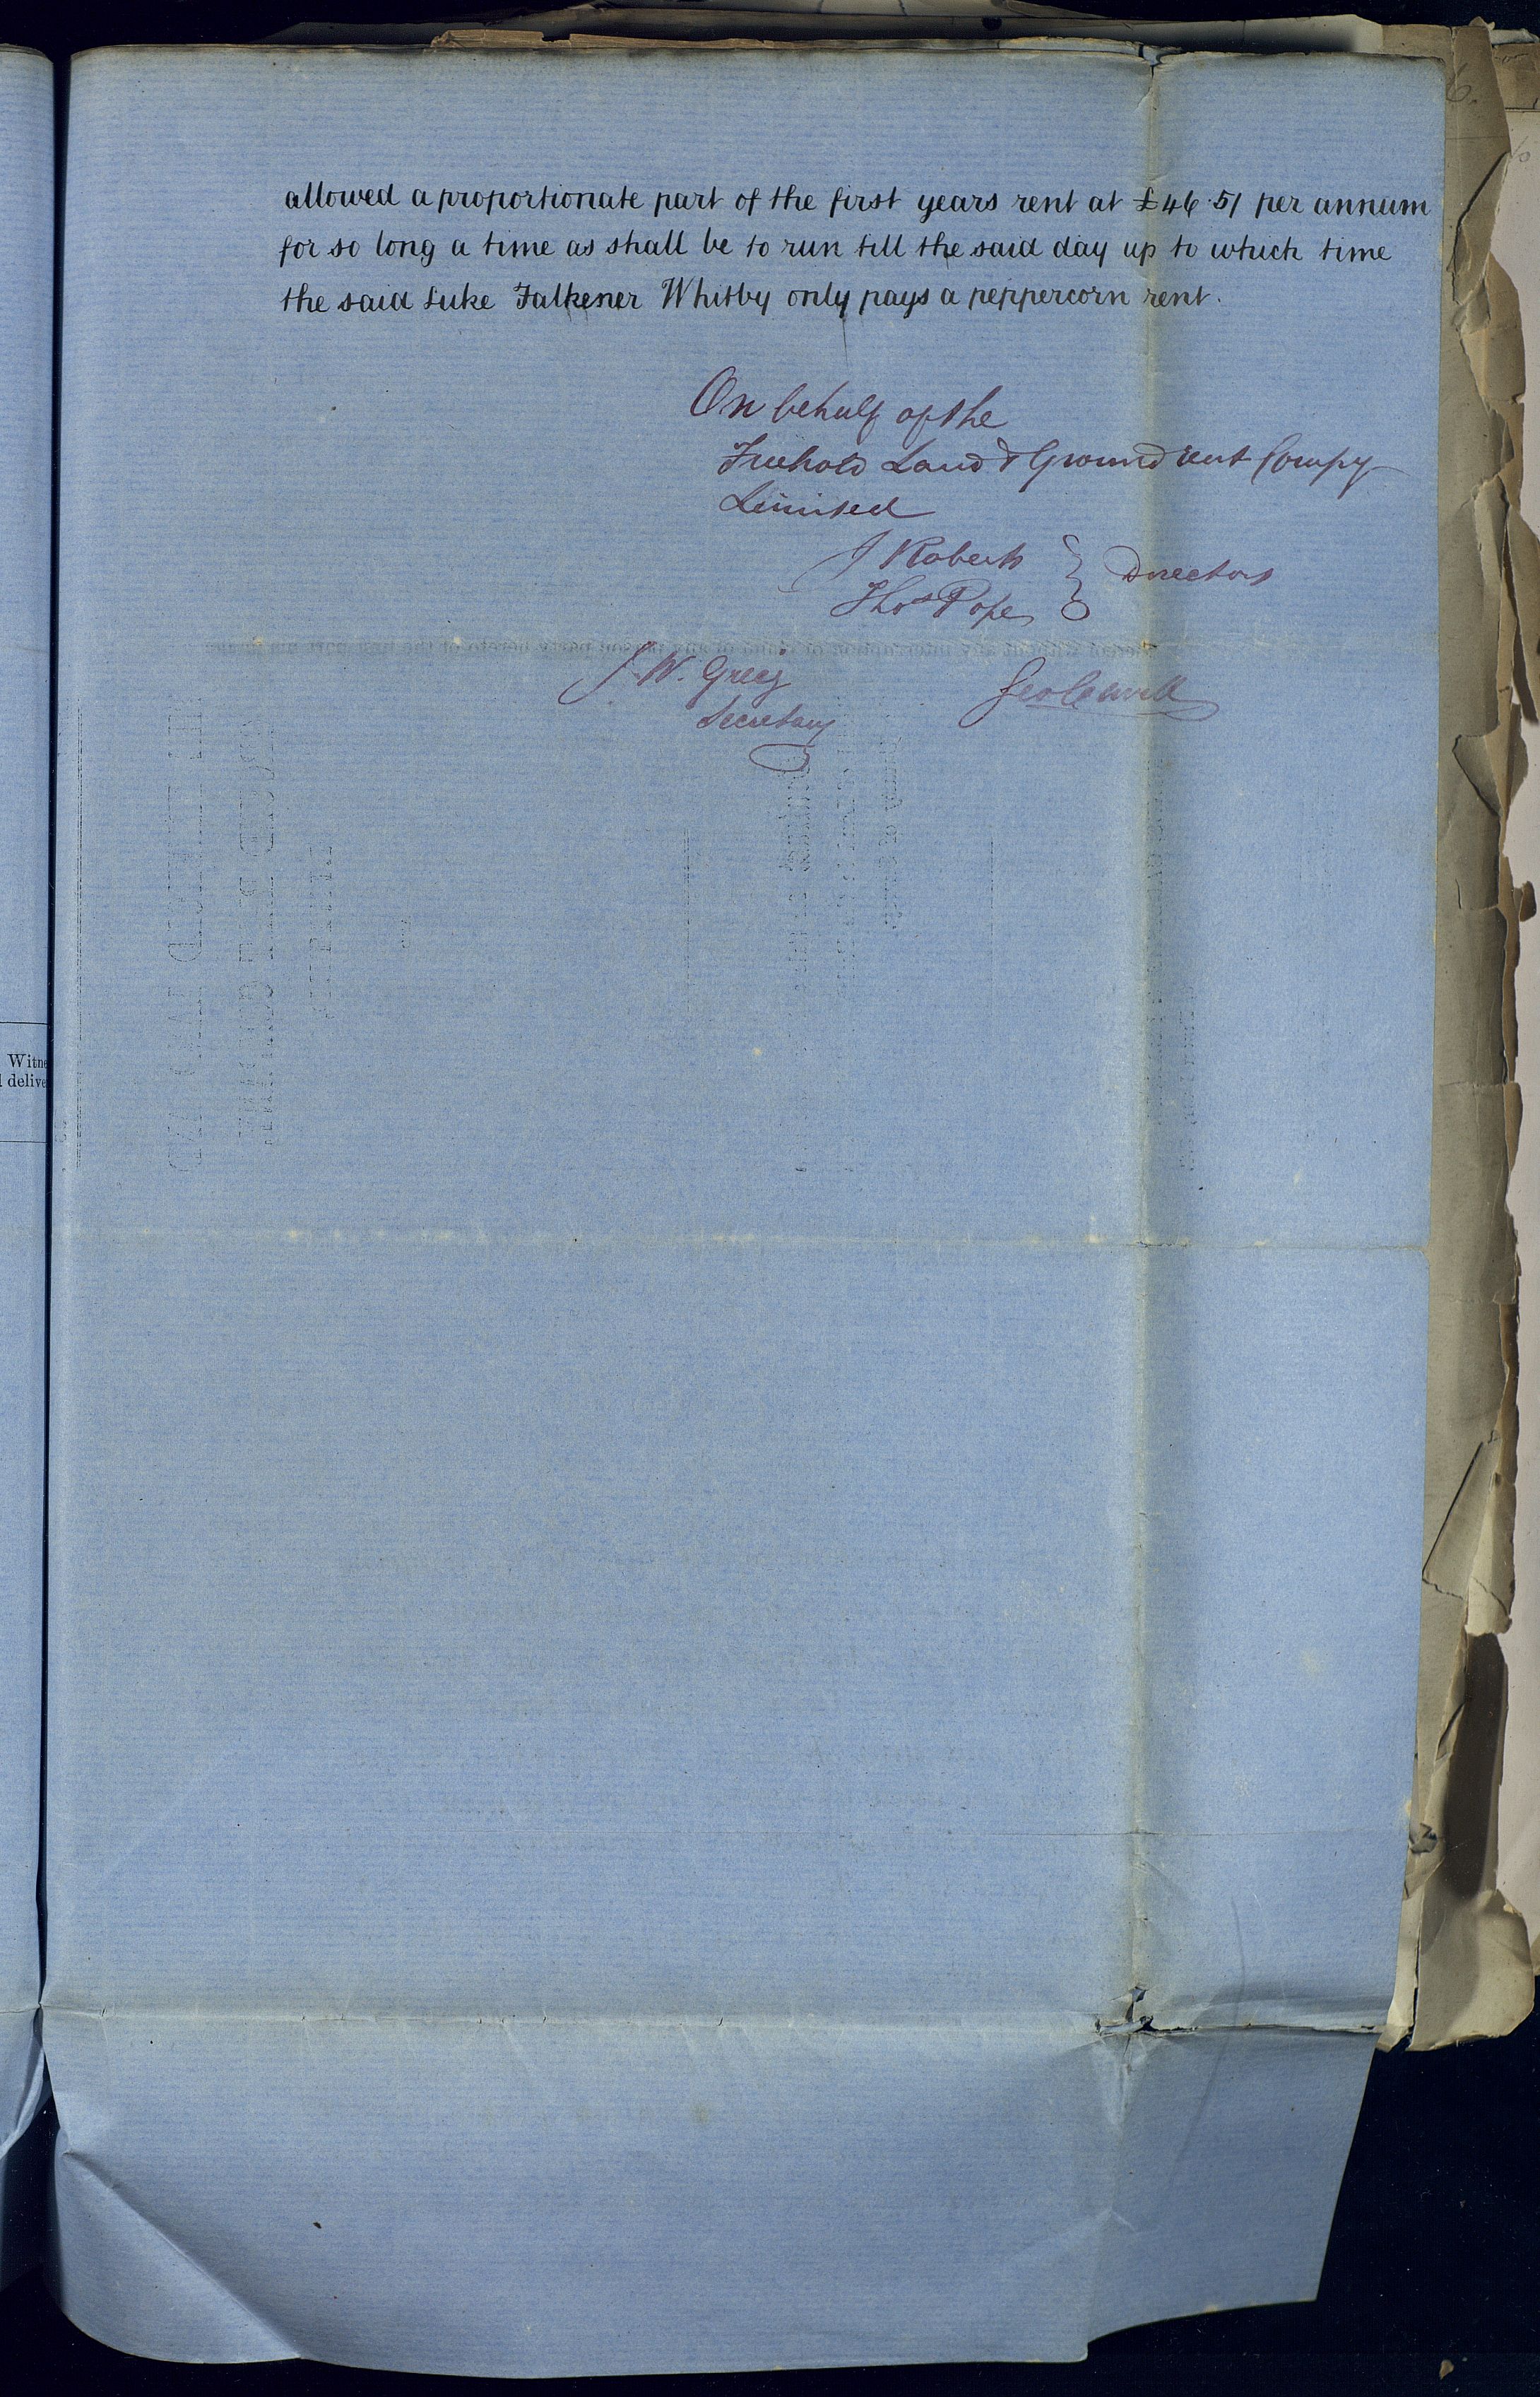 allowed a proportionate part of the first years rent at £46.5/ per annum
for so long a time as shall be to run till the said day up to which time
the said Luke Falkener Whitby only pays a peppercorn rent.
On behalf of the
Freehold Land & Ground rent Compy
Limited
J Roberts } Directors
Thos Pope
J. W. Greig
Secretary
Witne
d delive